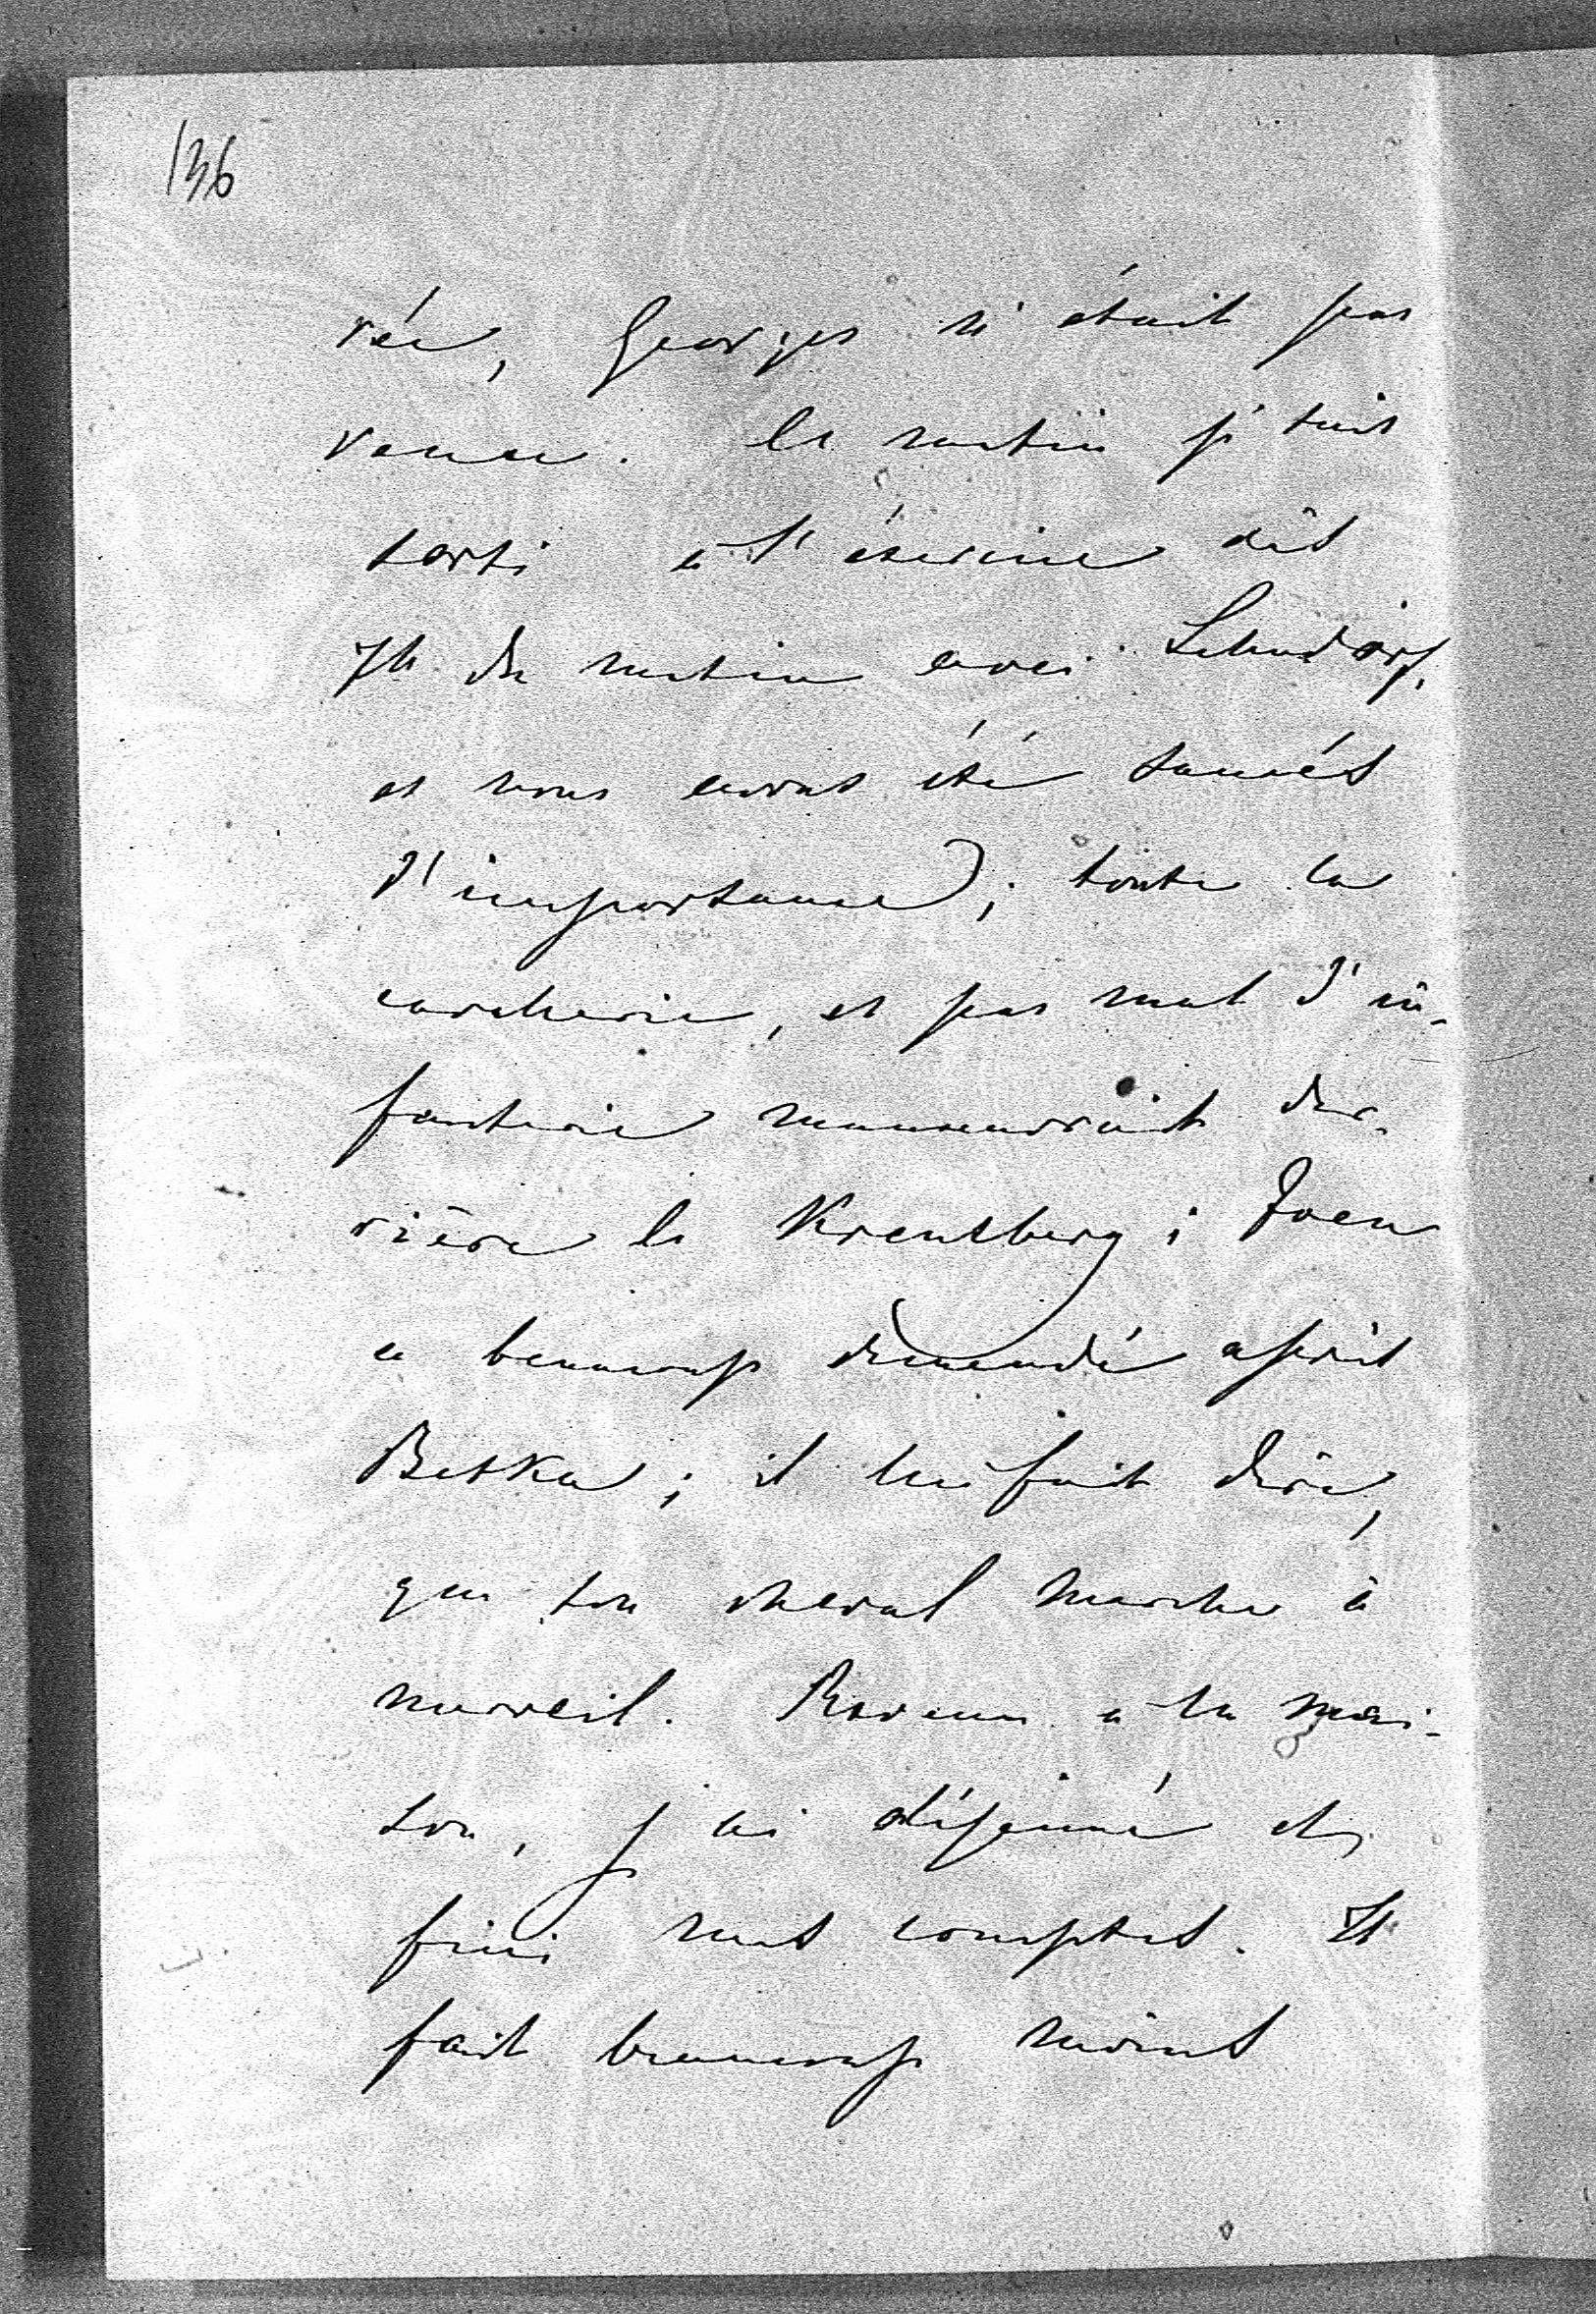 136
rée, Georges n'était pas
venu. Le matin j'étais
sorti à l'exercice dès
7h du matin avec Lehndorf,
et nous avons été sauciés
d'importance; toute la
cavalerie, et pas mal d'in-
fanterie manoeuvrait der-
rière le Kreutsberg; Joen
a beaucoup demandé après
Betka; il lui fait dire,
que son cheval marche à
merveil. Revenu à la mai-
son, j'ai déjeuné et
fini mes comptes. Il
fait beaucoup moins